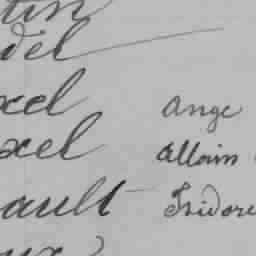 tin
del
xel Ange
xel Allain
ault Isidore
ux